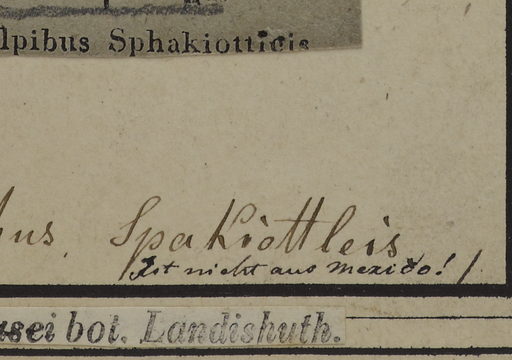 lpibus Sphakiotticis
bus. Spakiottleis
Ist nicht aus Mexido!
usei bot. Landishuth.